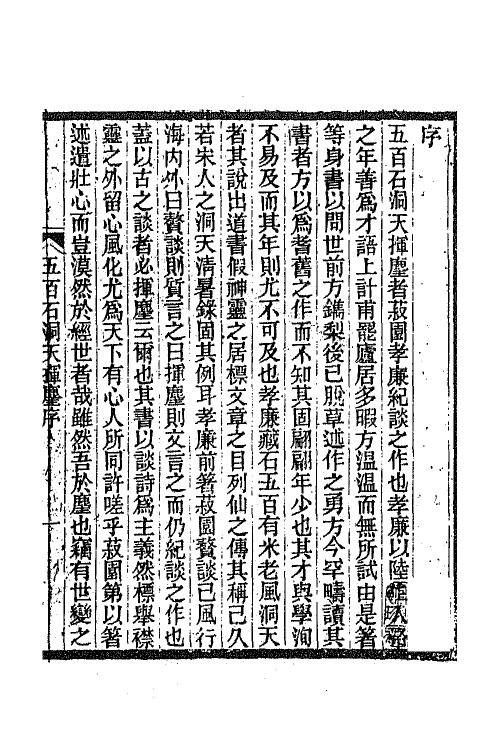 序
五百石洞天揮麈者菽園孝廉紀談之作也孝廉以陸
之年善爲才語上計甫罷廬居多暇方溫溫而無所試由是著
等身書以問世前方鐫梨後已脫草述作之勇方今罕疇讀其
書者方以爲耆舊之作而不知其固翩翩年少也其才與學洵
不易及而其年則尤不可及也孝廉藏石五百有米老風洞天
者其說出道書假神靈之居標文章之目列仙之傳其稱已久
若宋人之洞天清暑錄固其例耳孝廉前著菽園贅談已風行
海內外曰贅談則質言之曰揮麈則文言之而仍紀談之作也
蓋以古之談者必揮麈云爾也其書以談詩爲主義然標舉襟
靈之外留心風化尤爲天下有心人所同許嗟乎菽園第以著
述遣壯心而豈漠然於經世者哉雖然吾於麈也竊有世變之
五百石洞天揮麈序
一